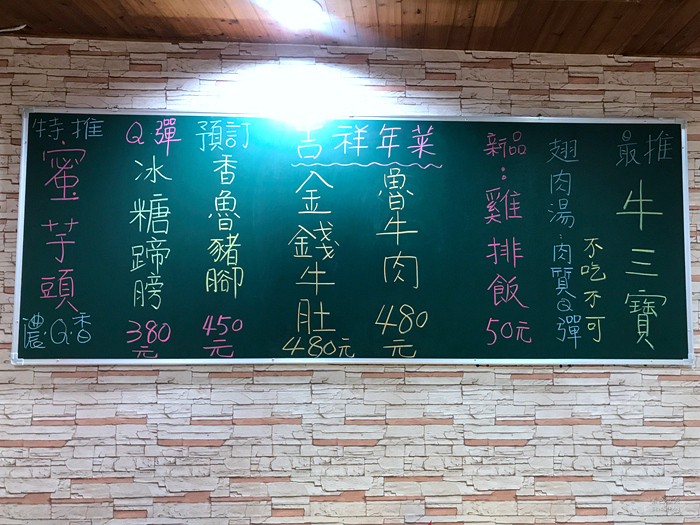 最推
牛三寶
不吃不可
翅肉湯:肉質Q彈
新品:雞排飯
50元
吉祥年菜
魯牛肉
480元
金錢牛肚
480元
預訂
香魯豬腳
450元
Q.彈
冰糖蹄膀
380元
特推
蜜芋頭
濃.Q.香